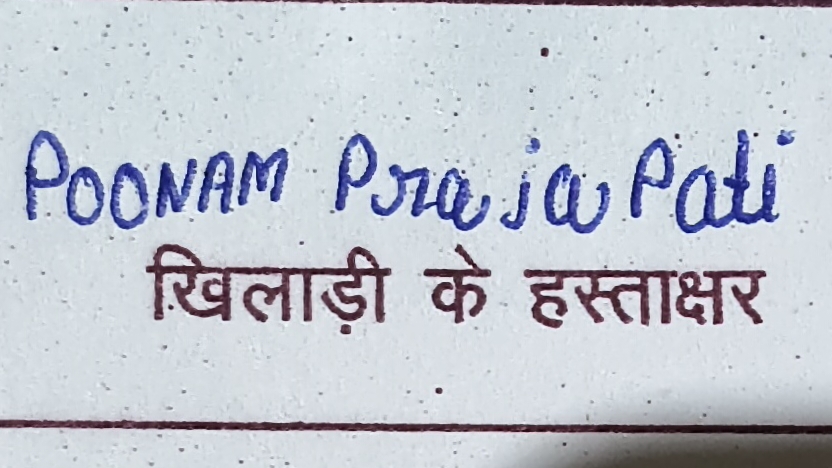 POONAM PrajaPati
खिलाड़ी के हस्ताक्षर